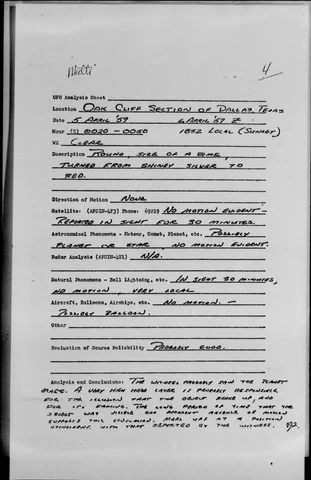 4
UFO Analysis Sheet
Location OAK CLIFF SECTION OF DALLAS, TEXAS
Date 5 APRIL '59 6 APRIL '59 Z
Hour (Z) 0020 - 0050 1852 LOCAL (SUNSET)
WX CLEAR
Description ROUND, SIZE OF A DIME,
TURNED FROM SHINEY SILVER TO
RED.
Direction of Motion NONE
Satellite: (AFCIN-4F3) Phone: 69219 NO MOTION EVIDENT -
REPORTED IN SIGHT FOR 30 MINUTES.
Astronomical Phenomena - Meteor, Comet, Planet, etc. POSSIBLY
PLANET OR STAR, NO MOTION EVIDENT.
Radar Analysis (AFCIN-4E1) N/A.
Natural Phenomena - Ball Lightning, etc. IN SIGHT 30 MINUTES,
NO MOTION, VERY LOCAL
Aircraft, Balloons, Airships, etc. NO MOTION. -
POSSIBLY BALLOON.
Other
Evaluation of Source Reliability PROBABLY GOOD.
Analysis and Conclusions: THE WITNESS PROBABLY SAW THE PLANET
MARS. A VERY THIN HAZE LAYER IS PROBABLY RESPONSIBLE
FOR THE ILLUSION THAT THE OBJECT BROKE UP, AND
FOR ITS FADING. THE LONG PERIOD OF TIME THAT THE
OBJECT WAS VISIBLE AND APPARENT ABSENCE OF MOTION
SUPPORTS THIS CONCLUSION. MARS WAS AT A POSITION
COINCIDENT WITH THAT REPORTED BY THE WITNESS.